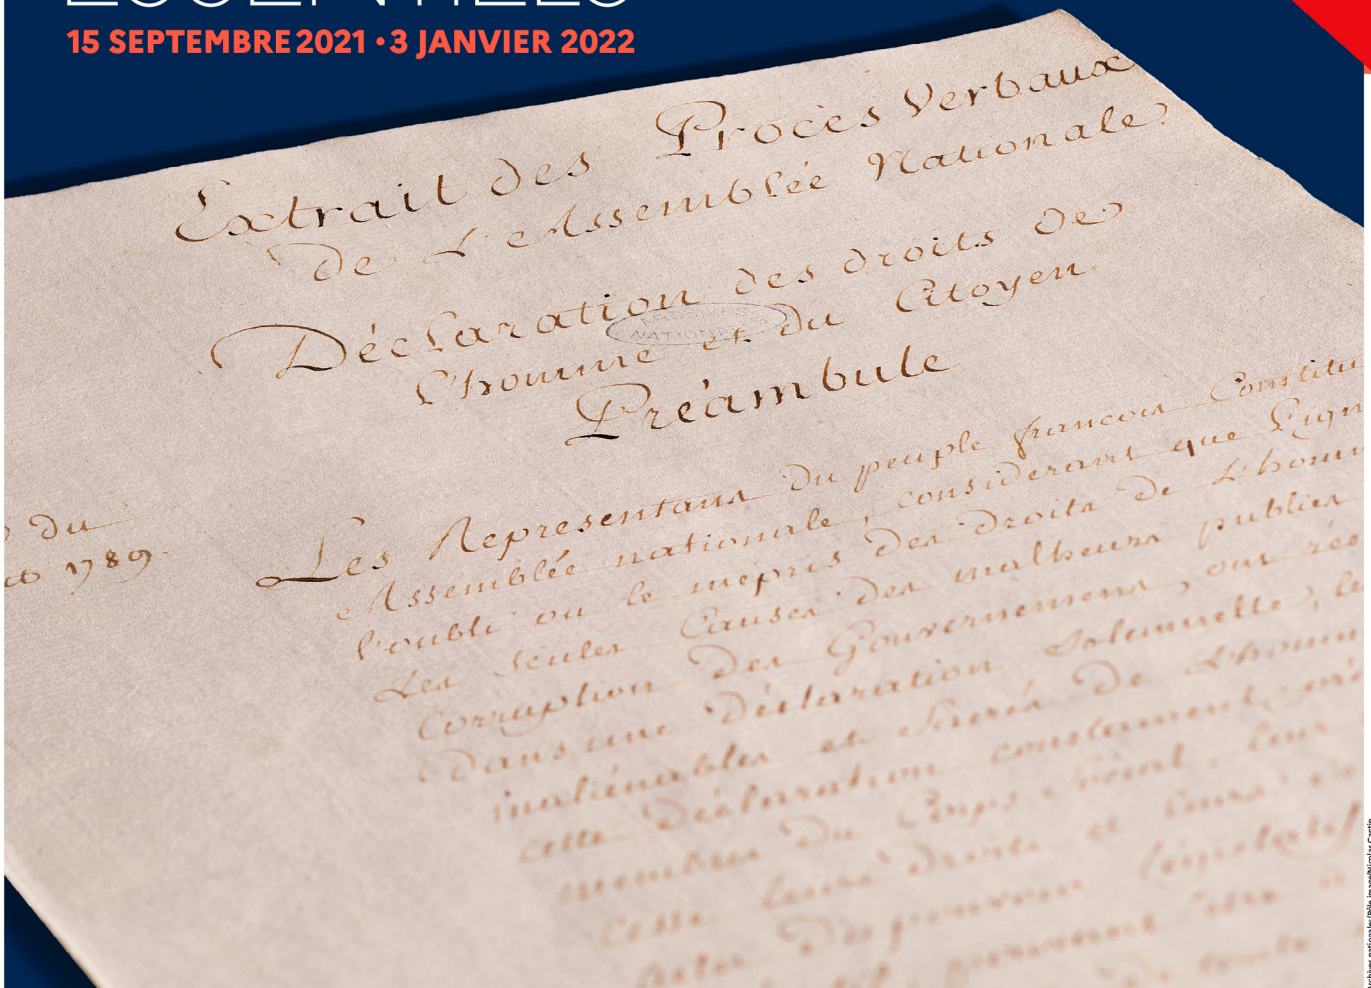 ESSENTIELS
15 SEPTEMBRE 2021 • 3 JANVIER 2022
Extrait des Procès Verbaux
de L'Assemblée Nationale
Déclaration des droits de
l'homme et du Citoyen
ARCHIVES NATIONALES
Préambule
du
1789
Les Representans du peuple francois Constitu
Assemblée nationale, considerant que L'ign
l'oubli ou le mépris des droits de L'homm
Les seules Causes des malheurs publics
Corruption des Gouvernemens, ont réso
dans une Déclaration Solennelle, le
inaliénables et Sacrés de L'homm
cette Déclaration constament pré
membres du Corps Social, leur
cesse leurs droits et leurs de
actes du pouvoir législatif